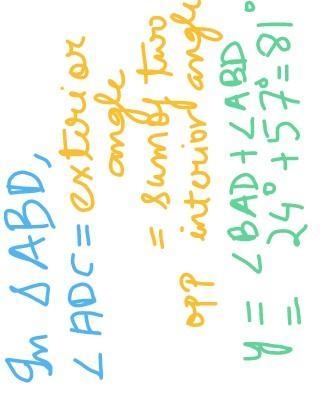 In ∆ ABD,
∠ ADC = exterior
angle
= sum of two
opp interior angle
y = ∠BAD + ∠ABD
= 24° + 57° = 81°